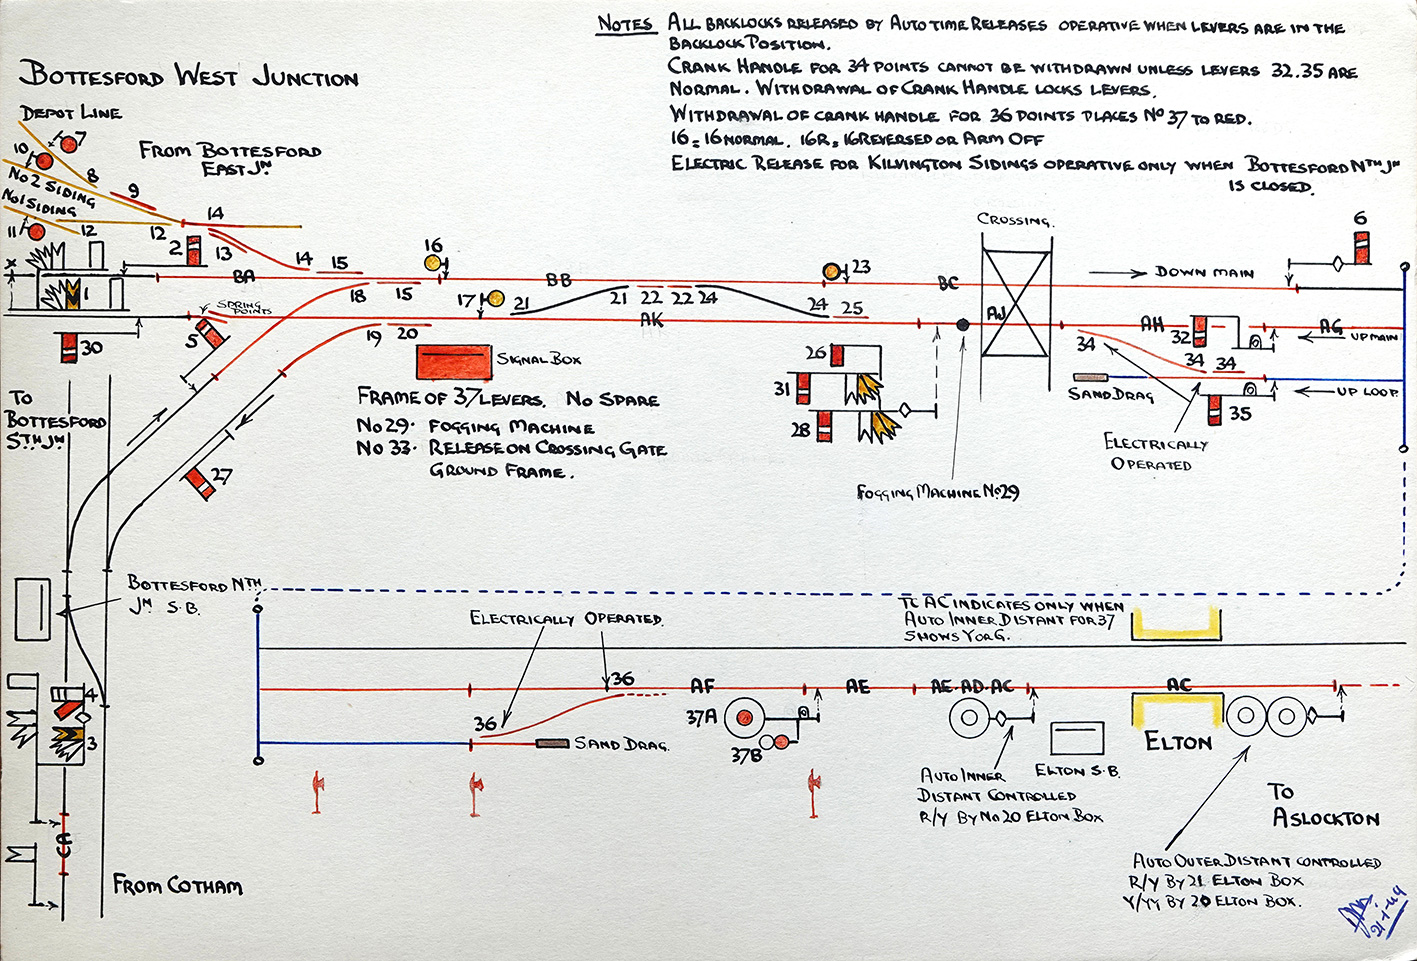 NOTES ALL BACKLOCKS RELEASED BY AUTO TIME RELEASES OPERATIVE WHEN LEVERS ARE IN THE
BACKLOCK POSITION.
CRANK HANDLE FOR 34 POINTS CANNOT BE WITHDRAWN UNLESS LEVERS 32.35 ARE
NORMAL. WITHDRAWAL OF CRANK HANDLE LOCKS LEVERS.
WITHDRAWAL OF CRANK HANDLE FOR 36 POINTS PLACES No 37 TO RED.
16 = 16 NORMAL. 16R = 16 REVERSED OR ARM OFF
ELECTRIC RELEASE FOR KILVINGTON SIDINGS OPERATIVE ONLY WHEN BOTTESFORD NTH JN
IS CLOSED.
BOTTESFORD WEST JUNCTION
DEPOT LINE
7
10
FROM BOTTESFORD
EAST JN
No 2 SIDING
8
9
No 1 SIDING
11
12
12
14
2
13
14
15
16
BA
BB
23
BC
CROSSING.
6
DOWN MAIN
X
1
SPRING
POINTS
5
18
15
17
21
21
22
22
24
AK
24
25
AJ
AH
32
AG
UP MAIN
30
19
20
SIGNAL BOX
26
34
34
34
31
28
SAND DRAG
35
UP LOOP.
TO
BOTTESFORD
STH JN
FRAME OF 37 LEVERS. NO SPARE
No 29. FOGGING MACHINE
No 33. RELEASE ON CROSSING GATE
GROUND FRAME.
ELECTRICALLY
OPERATED
27
FOGGING MACHINE No 29
BOTTESFORD NTH
JN S.B.
ELECTRICALLY OPERATED.
TC AC INDICATES ONLY WHEN
AUTO INNER DISTANT FOR 37
SHOWS Y OR G.
36
AF
AE
AE-AD-AC
AC
4
3
36
SAND DRAG.
37A
37B
ELTON
ELTON S.B.
AUTO INNER
DISTANT CONTROLLED
R/Y BY No 20 ELTON BOX
TO
ASLOCKTON
CA
FROM COTHAM
AUTO OUTER DISTANT CONTROLLED
R/Y BY 21 ELTON BOX
Y/YY BY 20 ELTON BOX.